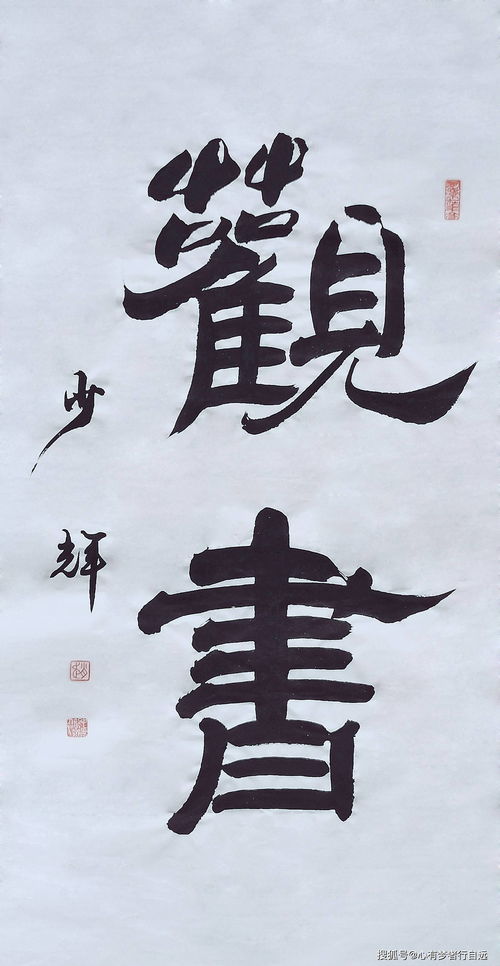 觀書
少輝
搜狐号@心有梦者行自远